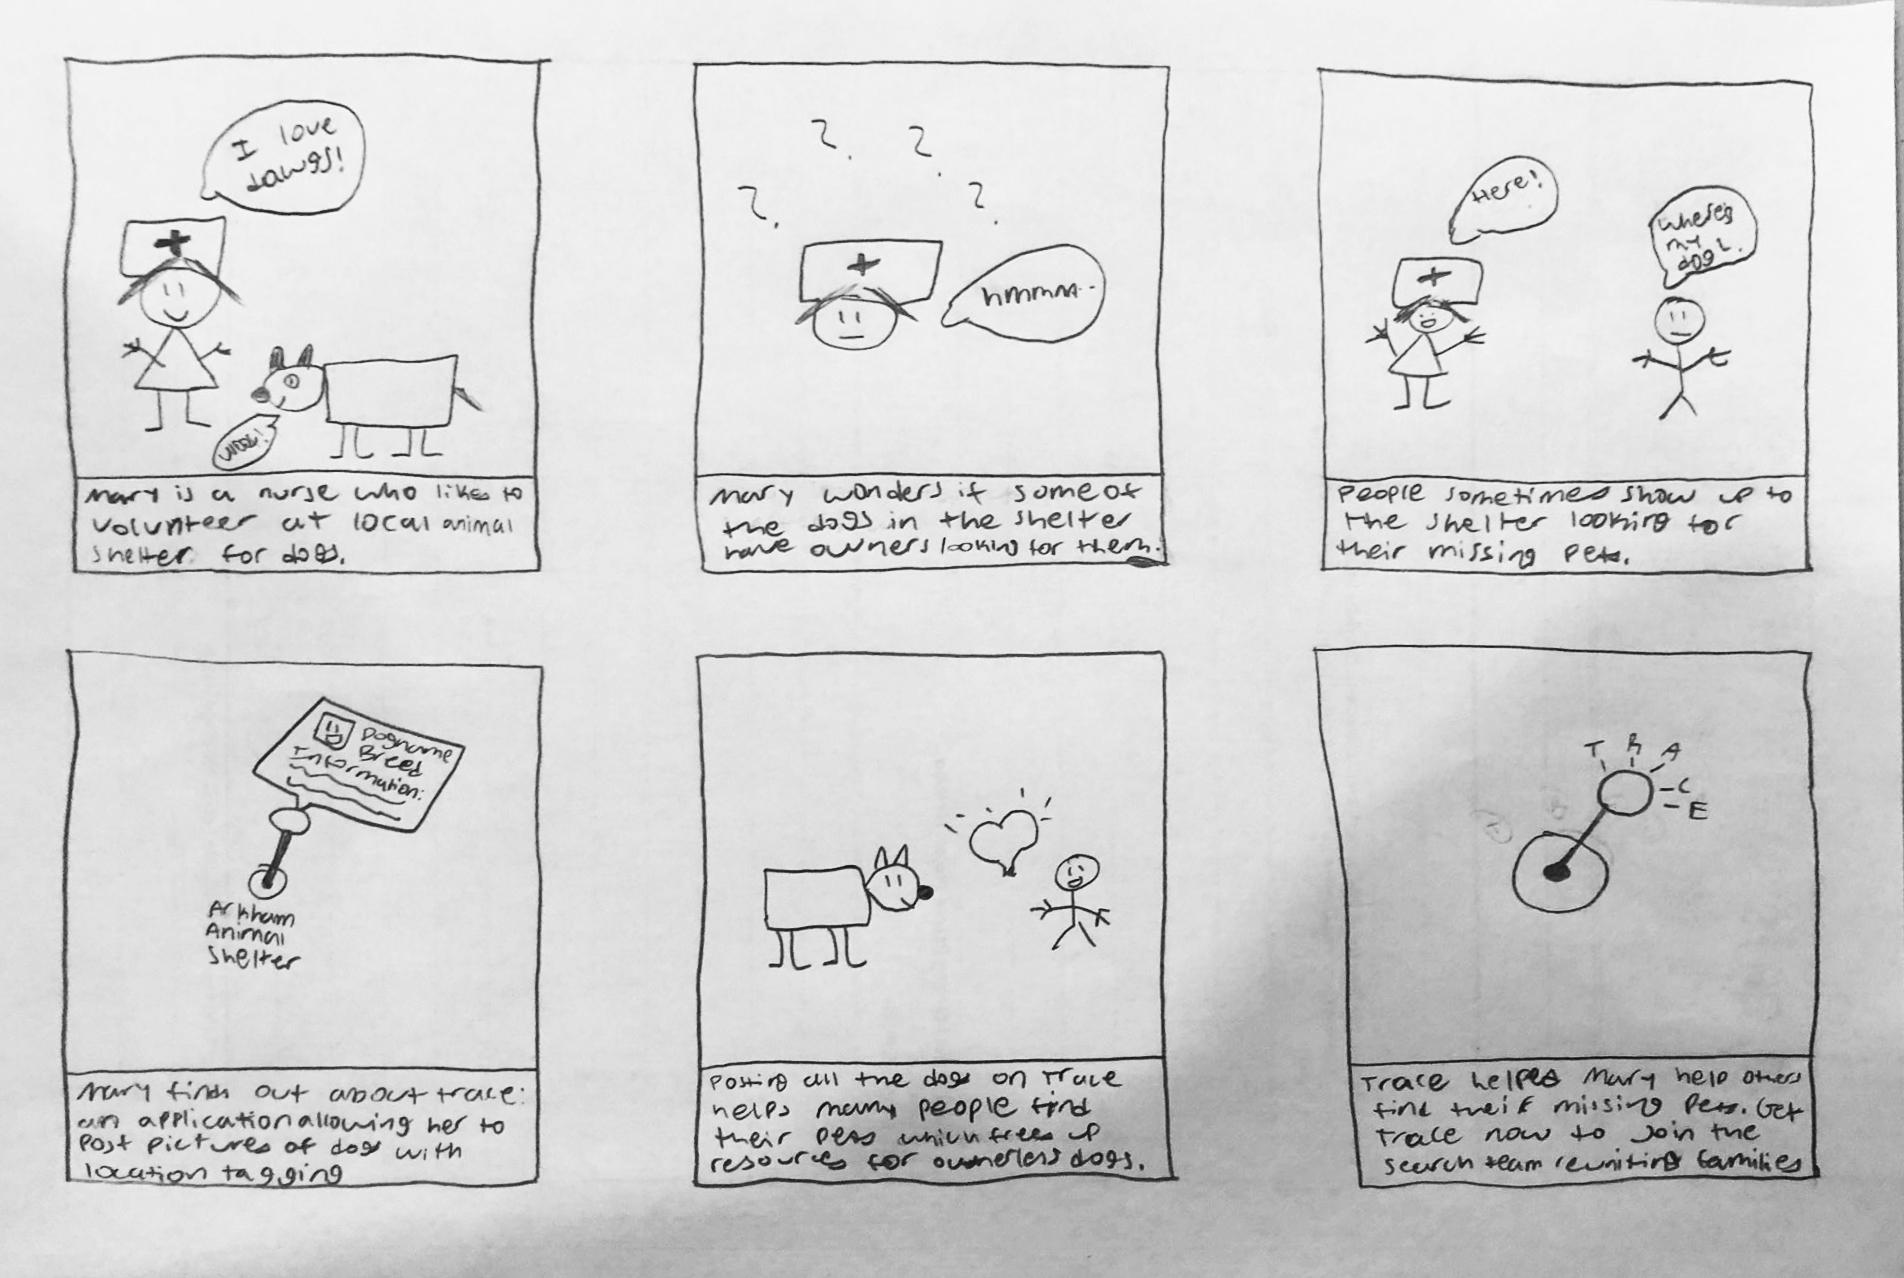 I love
dawgs!
woof!
Mary is a nurse who likes to
volunteer at local animal
shelter for dogs.
? ? ? ?
hmmm..
Mary wonders if some of
the dogs in the shelter
have owners looking for them.
Here!
Where's
my
dog?
People sometimes show up to
the shelter looking for
their missing pets.
Dogname
Breed
Information:
Arkham
Animal
Shelter
Mary finds out about trace:
an application allowing her to
post pictures of dogs with
location tagging
Posting all the dogs on Trace
helps many people find
their pets which frees up
resources for ownerless dogs.
T R A C E
Trace helped Mary help others
find their missing pets. Get
Trace now to join the
search team reuniting families